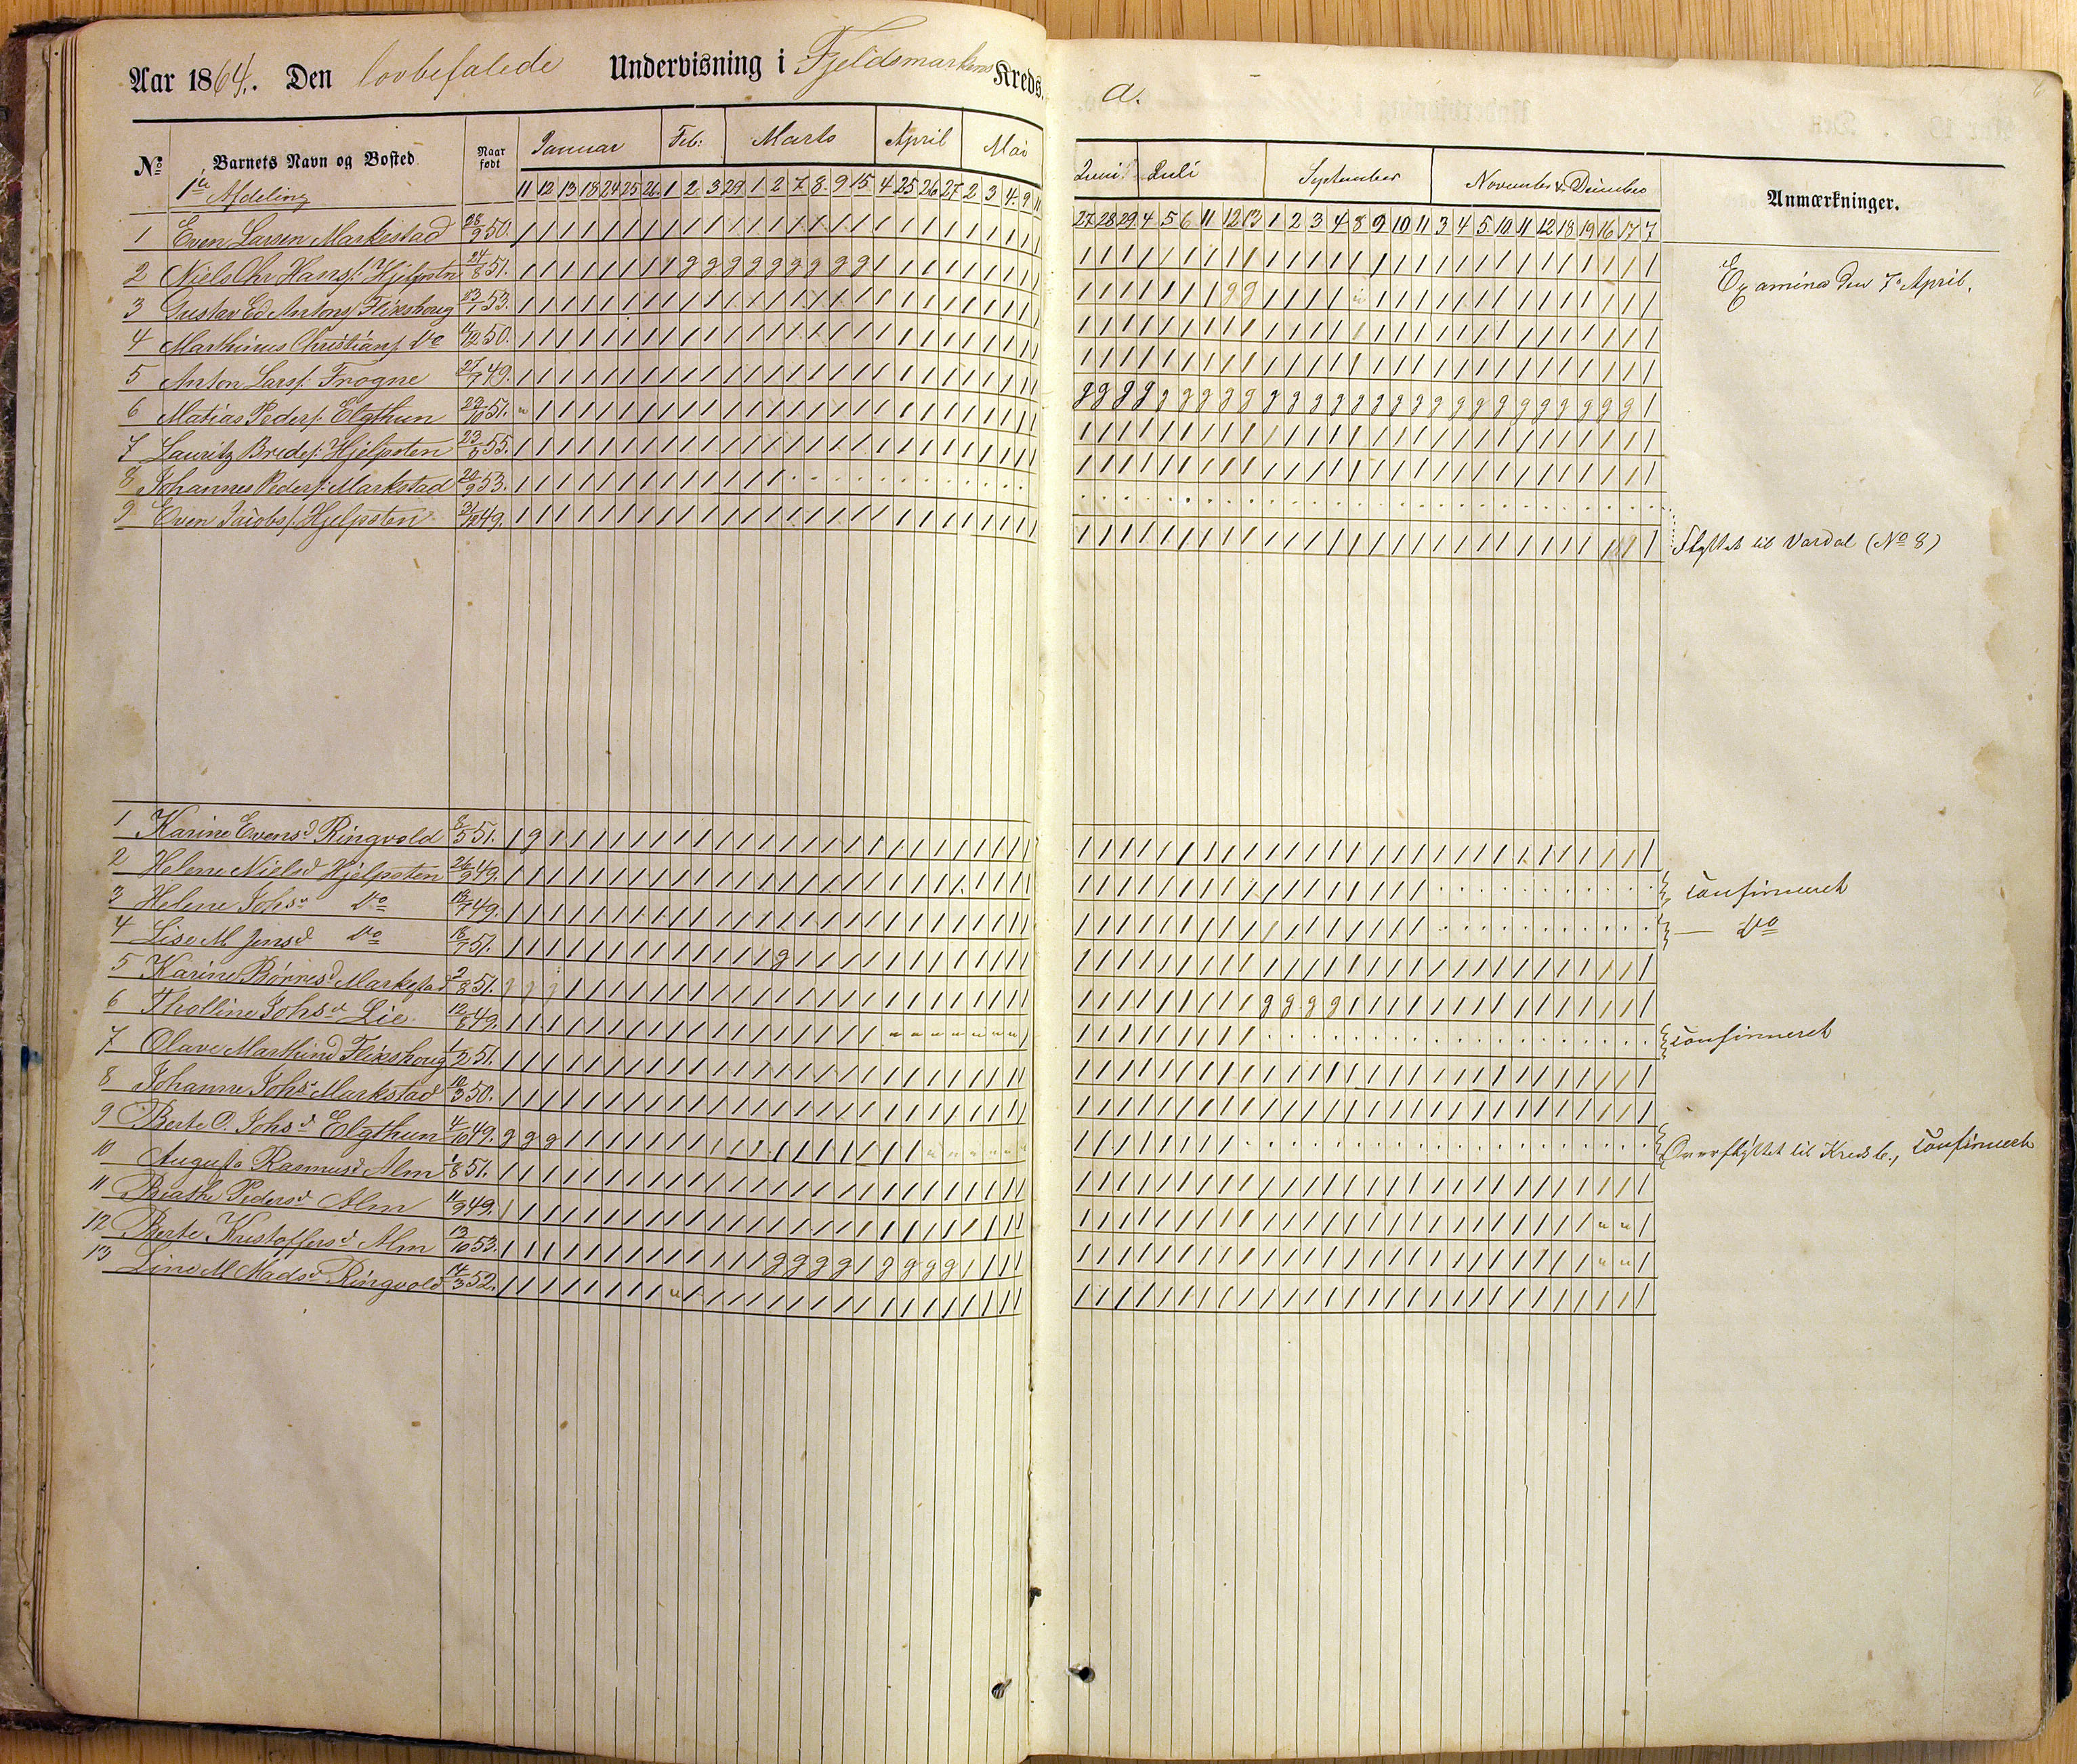 Aar 1864. Den lovbefalede Undervisning i Fjeldsmarkens Kreds. a.
No Barnets Navn og Bosted Naar født Januar Feb: Marts April Mai Juni Juli September November & December Anmærkninger.
1ste Afdeling 11 12 13 18 24 25 26 1 2 3 29 1 2 7 8 9 15 4 25 26 27 2 3 4 9 11 27 28 29 4 5 6 11 12 13 1 2 3 4 8 9 10 11 3 4 5 10 11 12 18 19 16 17 7
1 Even Larsen Markestad 28/9 50.
2 Niels Chr Hanss: Hjelpsten 24/8 51. Examina den 7de April.
3 Gustav Ed Antons Flikshoug 23/1 53.
4 Marthinus Christians Do 50.
5 Anton Larss: Frogne 49.
6 Matias Peders: Elgthun 51.
7 Lauritz Bredes: Hjelpsten 23/8 55.
8 Johannes Peders: Markstad 53.
9 Even Jacobs: Hjelpsten 49. Flyttet til Vardal (No 8)
1 Karine Evensd Ringvold 8/5 51.
2 Helene Nielsd Hjelpsten 26/9 49. Confirmeret
3 Helene Johsd Do 49. — Do
4 Lise M Jensd Do 51.
5 Karine Børresd Markestad 2/8 51.
6 Tholline Johsd Lie 12/8 49. Confirmeret
7 Olave Marthind Flikshoug 1/2 51.
8 Johanne Johsd Markstad 10/3 50.
9 Berte O. Johsd Elgthun 4/10 49. Overflyttet til Kreds b., Confirmert
10 Augusta Rasmusd Alm 1/8 51.
11 Beathe Pedersd Alm 11/9 49.
12 Berte Kristoffersd Alm 13/10 53.
13 Line M Madsd Ringvold 14/3 52.